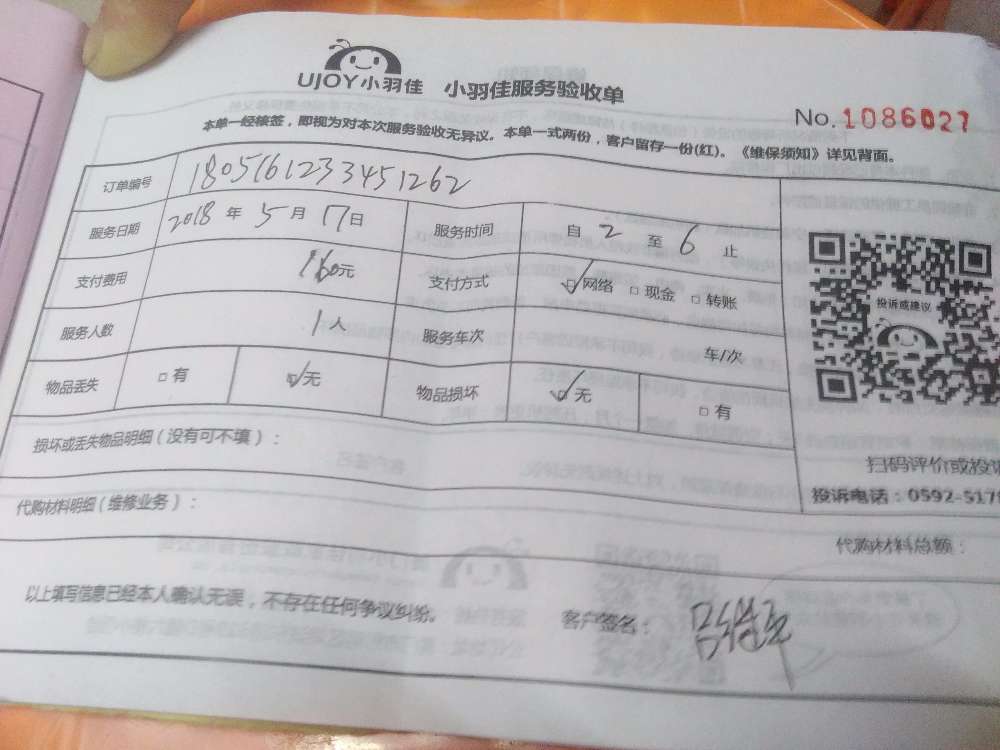 UJOY小羽佳 小羽佳服务验收单
No.1086027
本单一经核签，即视为对本次服务验收无异议。本单一式两份，客户留存一份(红)。《维保须知》详见背面。
订单编号 1805161233451262
服务日期 2018年5月17日 服务时间 自2至6止
支付费用 160元 支付方式 网络 现金 转账
服务人数 1人 服务车次 车/次
物品丢失 有 无 物品损坏 无 有
投诉或建议
损坏或丢失物品明细（没有可不填）：
扫码评价或投
投诉电话：0592-517
代购材料明细（维修业务）：
代购材料总额：
以上填写信息已经本人确认无误，不存在任何争议纠纷。
客户签名：